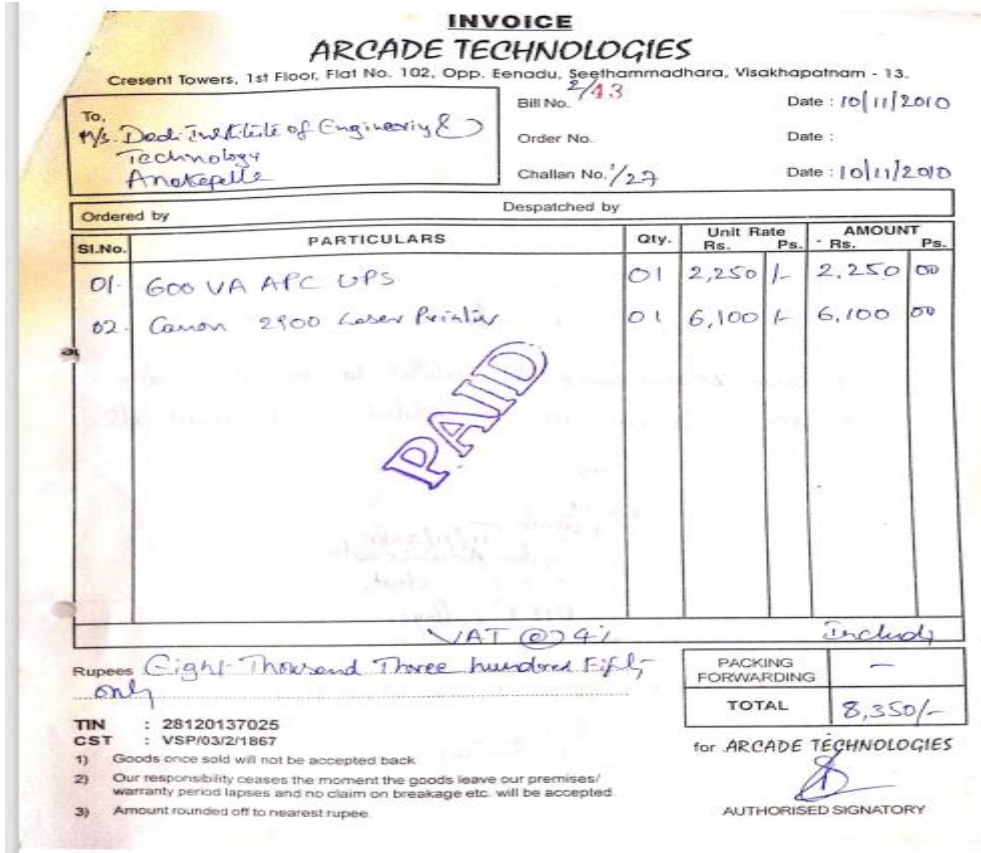 INVOICE
ARCADE TECHNOLOGIES
Cresent Towers, 1st Floor, Flat No. 102, Opp. Eenadu, Seethammadhara, Visakhapatnam - 13.
To,
M/s. Dadi Institute of Engineering &
Technology
Anakapalle
Bill No. 2/43 Date : 10/11/2010
Order No. Date :
Challan No. 1/27 Date : 10/11/2010
Ordered by Despatched by
Sl.No. PARTICULARS Qty. Unit Rate Rs. Ps. AMOUNT Rs. Ps.
01. 600 VA APC UPS 01 2,250 /- 2,250 00
02. Canon 2900 Laser Printer 01 6,100 /- 6,100 00
PAID
VAT @ 4% Includ
Rupees Eight Thousand Three hundred Fifty
only
PACKING FORWARDING -
TOTAL 8,350/-
TIN : 28120137025
CST : VSP/03/2/1867
1) Goods once sold will not be accepted back
2) Our responsibility ceases the moment the goods leave our premises/
warranty period lapses and no claim on breakage etc. will be accepted.
3) Amount rounded off to nearest rupee.
for ARCADE TECHNOLOGIES
AUTHORISED SIGNATORY